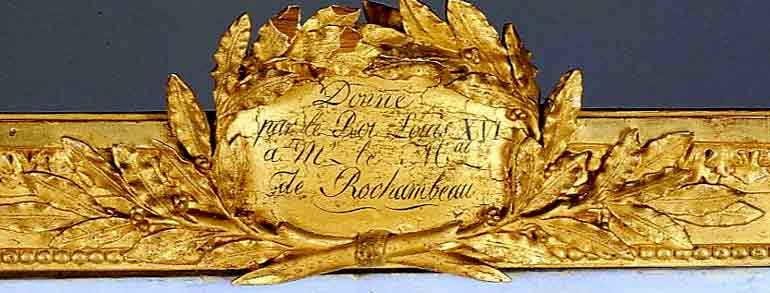 Donné
par le Roi Louis XVI
a Mr. le Mal
de Rochambeau